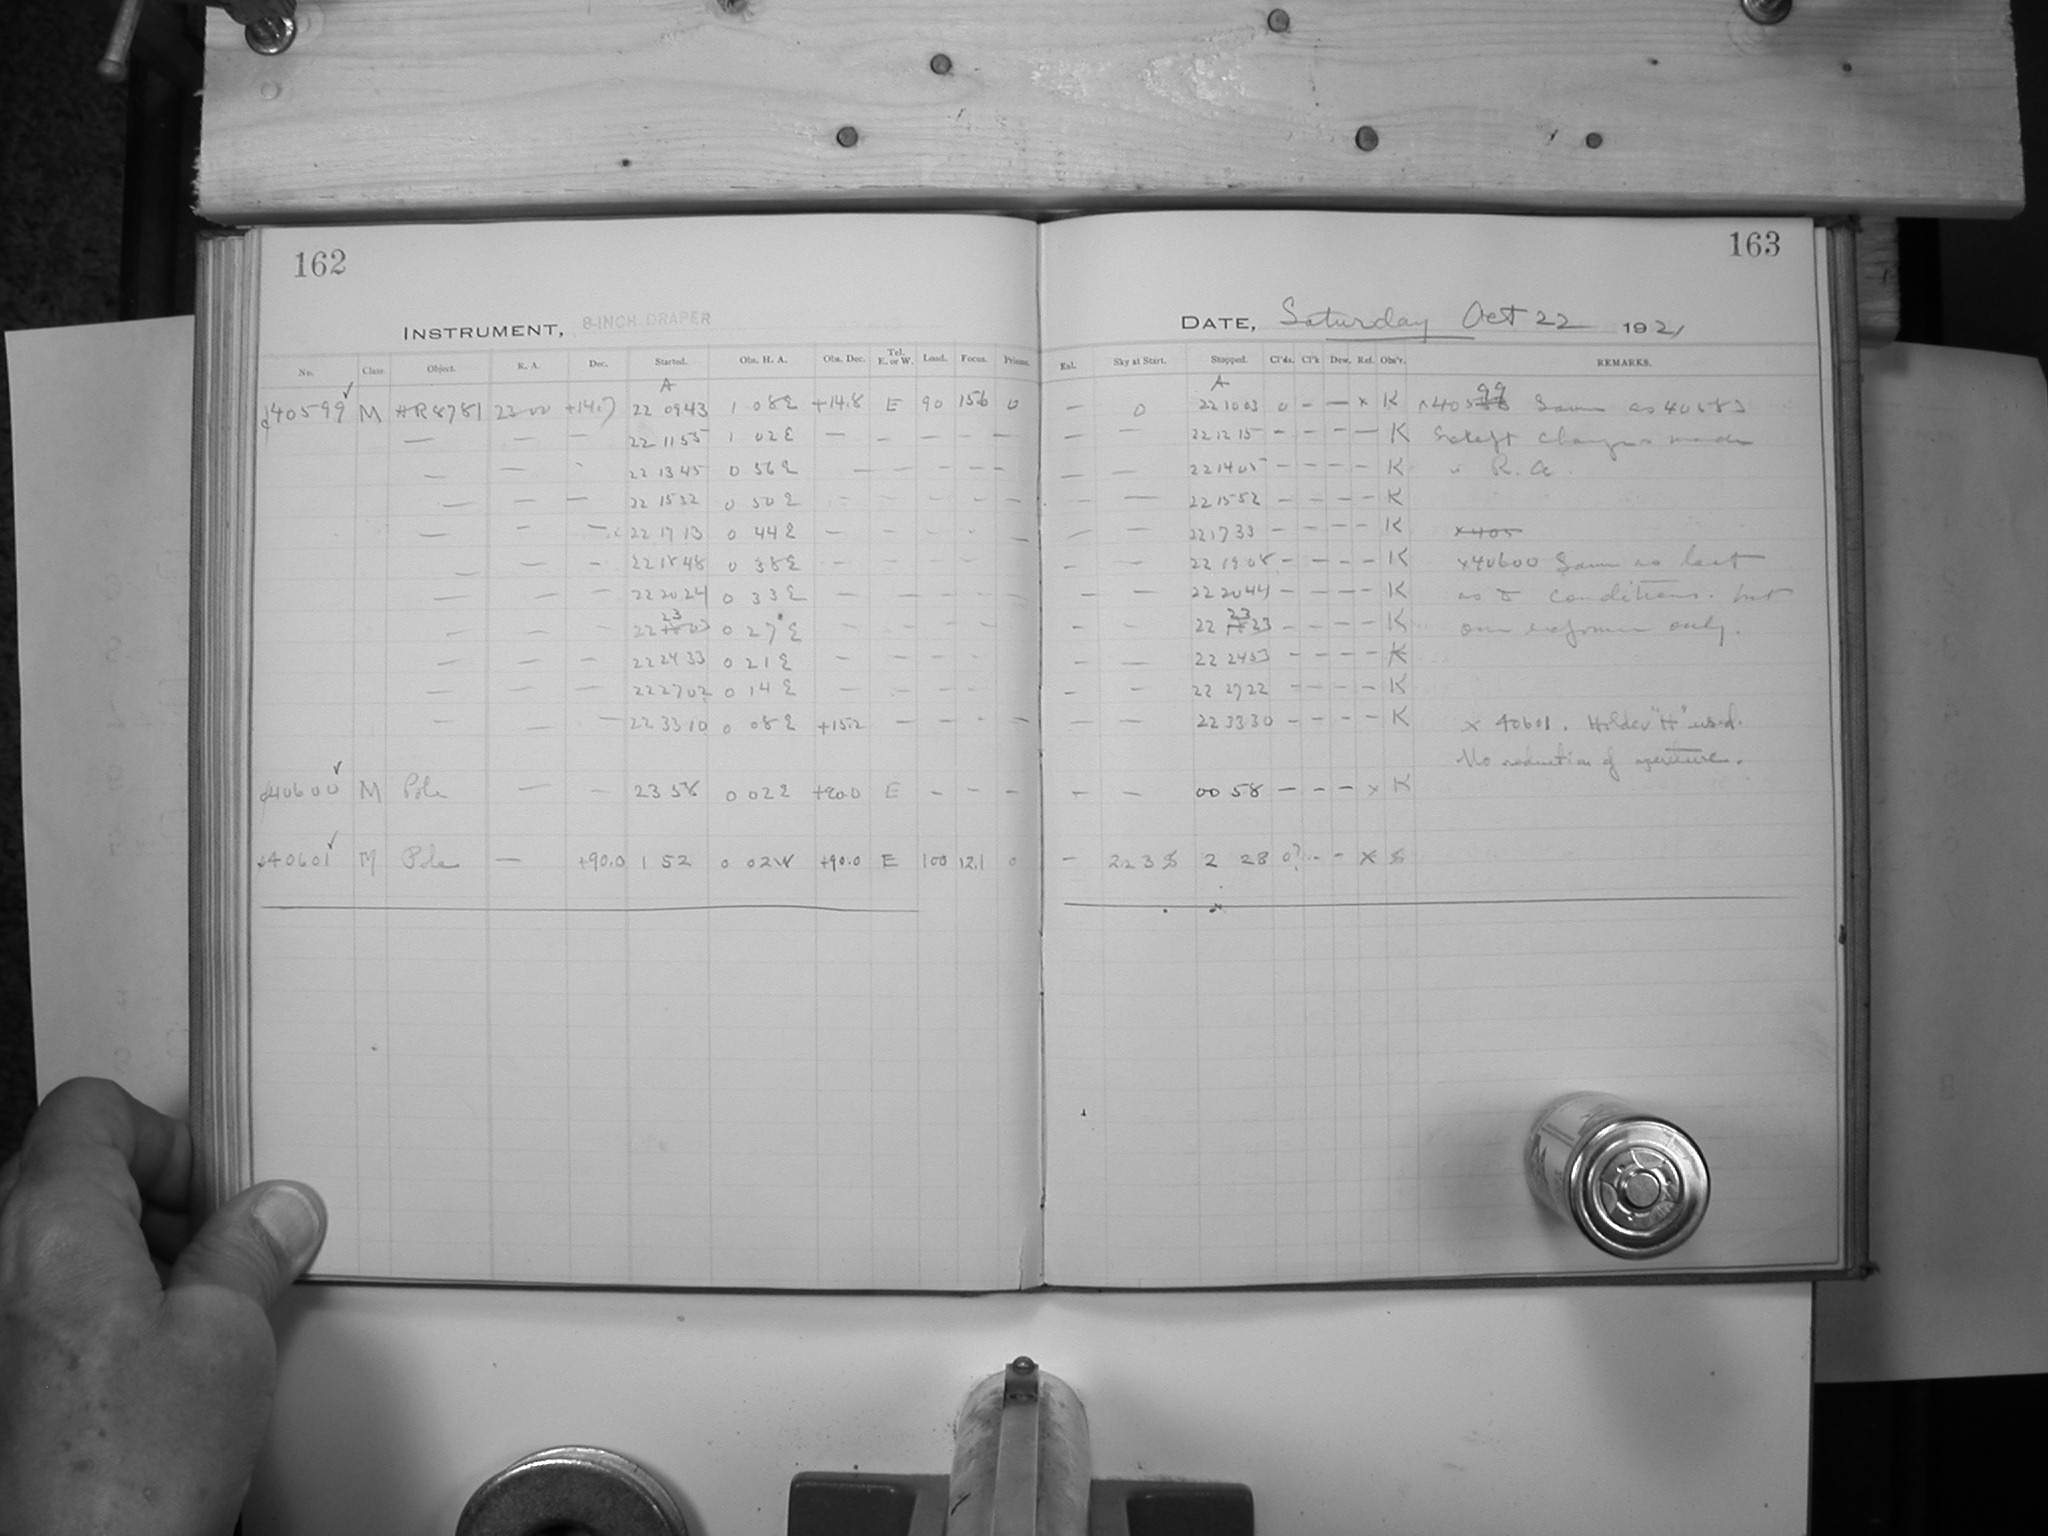 162
INSTRUMENT, 8-INCH DRAPER
No. Class. Object. R. A. Dec. Started. Obs. H. A. Obs. Dec. Tel. E. or W. Load. Focus. Prisms.
A
d40599 M HR8781 23 00 +14.7 22 09 43 1 08 E +14.8 E 90 156 0
— — — 22 11 55 1 02 E — — — — —
— — 22 13 45 0 56 E — — — — —
— — — 22 15 32 0 50 E — — — — —
— — — 22 17 13 0 44 E — — — — —
— — — 22 18 48 0 38 E — — — — —
— — — 22 20 24 0 33 E — — — — —
23
— — — 22 03 0 27 E — — — — —
— — — 22 24 33 0 21 E — — — — —
— — — 22 27 02 0 14 E — — — — —
— — — 22 33 10 0 08 E +15.2 — — — —
d40600 M Pole — — 23 58 0 02 E +90.0 E — — —
d40601 M Pole — +90.0 1 52 0 02 W +90.0 E 100 12.1 0
163
DATE, Saturday Oct 22 1921
Exl. Sky at Start. Stopped. Cl'ds. Cl'k Dew. Ref. Obs'r. REMARKS.
A
— 0 22 10 03 0 — — x K x40599 Same as 40583
— — 22 12 15 — — — — K except changes made
— — 22 14 05 — — — — K in R.A.
— — 22 15 52 — — — — K
— — 22 17 33 — — — — K x405
— — 22 19 08 — — — — K x40600 Same as last
— — 22 20 44 — — — — K as to conditions. but
23
— — 22 23 — — — — K one exposure only.
— — 22 24 53 — — — — K
— — 22 27 22 — — — — K
— — 22 33 30 — — — — K x 40601. Holder "H" used.
No reduction of aperture.
— — 00 58 — — — x K
— 22 3 S 2 28 0? — — x S